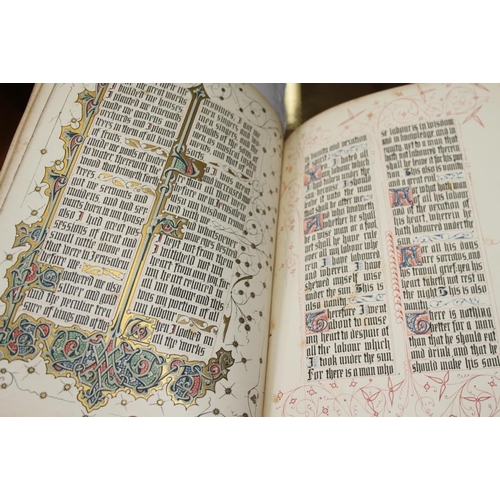 me great works
I builded me houses
I planted me
made me gardens
and I planted
trees in them of
of fruits
me pools of
water therewith the
me servants and
maidens and had
servants born in my house
also I had great pos-
sessions of great and
small cattle above all
that were in Jerusalem
before me
also silver and gold
and the peculiar trea
sure of kings and of the
men singers and
women singers and the
delights of the sons
of men
I was great and
increased more than
all that were before me
in Jerusalem also
my wisdom remained
with me
eyes desired I
kept not from them
I withheld not my
heart from any joy for
my heart rejoiced in
all my labour and this
was my portion of all
my labour
Then I looked on
all the works
vanity and vexation
I hated all
my labour
which I had
taken under
the sun
I should
leave it unto the
man that shall
be after me
And who
knoweth
whether he
shall be a wise
man or a fool
yet shall he
have rule
over all my
labour wherein
I have laboured
and wherein
I have
shewed myself
wise under
the sun
This is
also vanity
Therefore I
went about
to cause my
heart to despair of
all the labour which
I took under the sun
For there is a man who
se labour is in wisdom
and in knowledge and in
equity yet to a man
that hath not laboured
therein shall
he leave it for his por-
tion This also is vanity
and a great evil
For what hath
man of all his
labour and of
the vexation of his
heart wherein he
hath laboured under
the sun
For all his days
are sorrows and
his travail grief yea his
heart taketh not rest in
the night This is also
vanity
There is nothing
better for a man
than that he should eat
and drink and that he
should make his soul